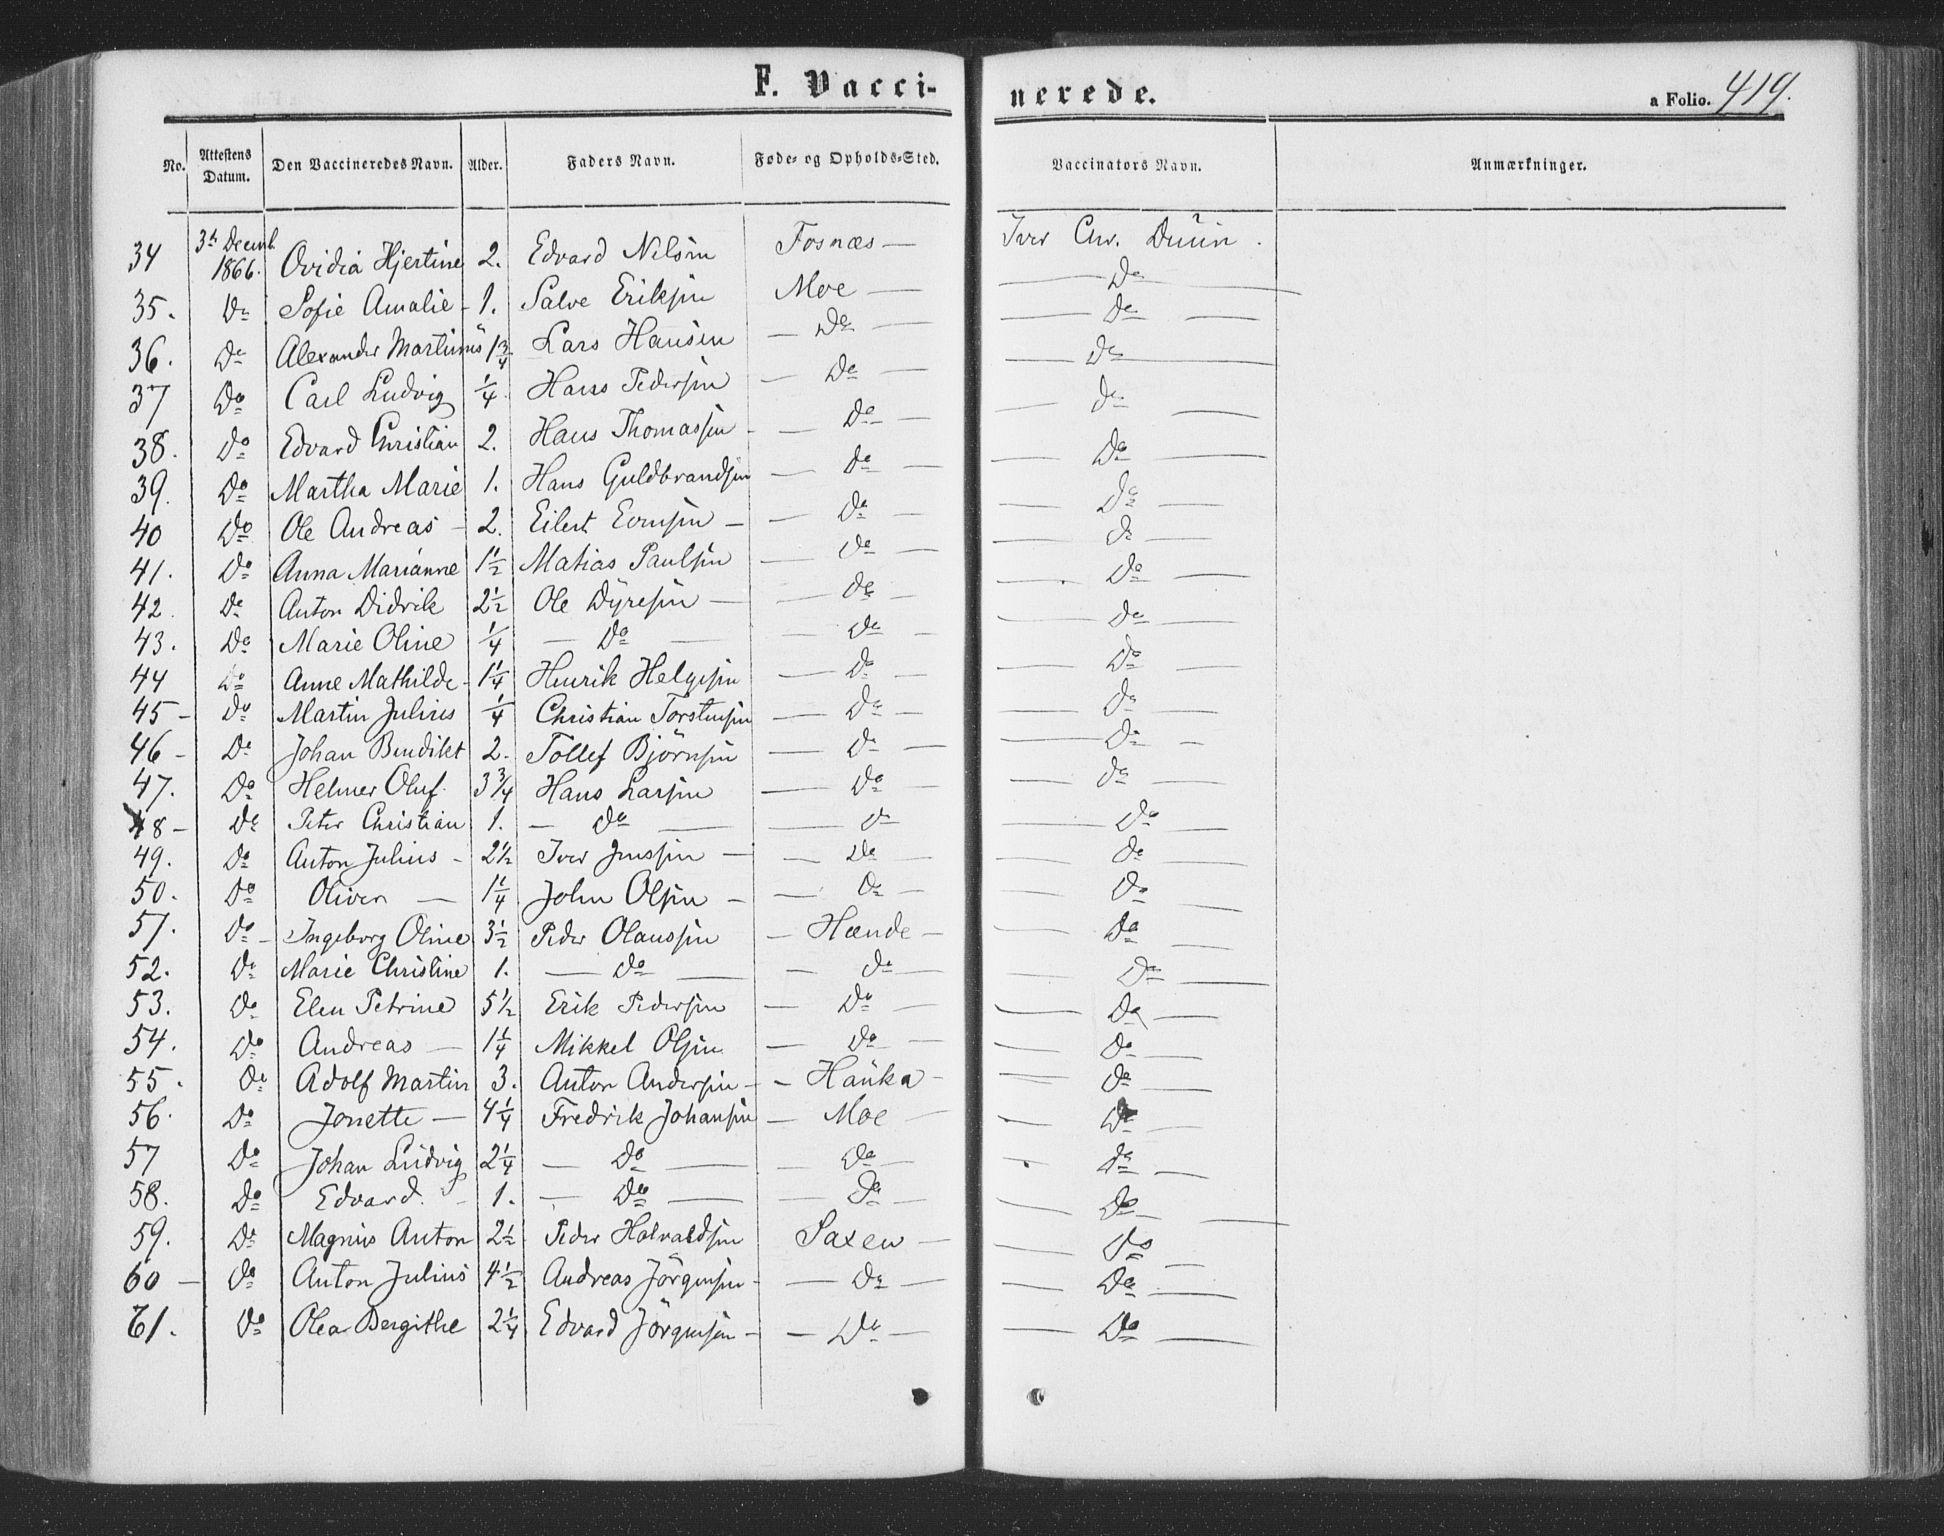 F. Vacci-
nerede.
a Folio. 419.
No. Attestens Datum. Den Vaccineredes Navn. Alder. Faders Navn. Føde- og Opholds-Sted. Vaccinators Navn. Anmærkninger.
34 3t Decemb. 1866. Ovidia Hjertine 2. Edvard Nilsen Fosnæs — Iver Chr. Duun.
35. Do Sofie Amalie - 1. Salve Eriksen Moe — — Do —
36. Do Alexander Martinus 1 3/4 Lars Hansen — Do — — do —
37 Do Carl Ludvig 1/4. Hans Pedersen — Do — — do —
38. Do Edvard Christian 2. Hans Thomassen - — Do — — do —
39. Do Martha Marie 1. Hans Guldbrandsen — do — — Do —
40 Do Ole Andreas - 2. Eilert Evensen — — Do — — Do —
41. Do Anna Marianne 1 1/2 Matias Paulsen — Do — — do —
42. Do Anton Didrik 2 1/2 Ole Dyresen — — do — — Do —
43. Do Marie Oline 1/4 — Do — — do — — do —
44 Do Anne Mathilde - 1 1/4 Henrik Helgesen — do — — Do —
45 - Do Martin Julius 1/4 Christian Torstensen — Do — — do —
46 - Do Johan Bendikt 2. Tollef Bjørnsen — do — — Do —
47. Do Helmer Oluf. 3 3/4 Hans Larsen — Do — — do —
48 - Do Peter Christian 1. — do — — do — Do —
49. Do Anton Julius - 2 1/2 Iver Jenssen — — Do — — do —
50. Do Oliver — 1 1/4 John Olsen — — Do — — do —
51. Do - Ingeborg Oline 3 1/2 Peder Olaussen — Hænde — — Do —
52. Do Marie Christine 1. — do — — do — — Do —
53. Do Elen Petrine 5 1/2 Erik Pedersen — Do — — Do —
54. Do Andreas — 1 1/4 Mikkel Olsen — do — — Do —
55. Do Adolf Martin 3. Anton Andersen — - Hauka - — do —
56. Do Jonette — 4 1/4 Fredrik Johansen — Moe — — Do —
57 Do Johan Ludvig 2 1/4 — Do — Do — — do —
58. Do Edvard. - 1. — Do — — Do — — Do —
59. Do Magnus Anton 2 1/2 Peder Halvaldsen Saxen — — Do —
60 — Do Anton Julius 4 1/2 Andreas Jörgensen - — Do — — Do —
61. Do Olea Bergithe 2 1/4 Edvard Jörgensen - — Do — — Do —